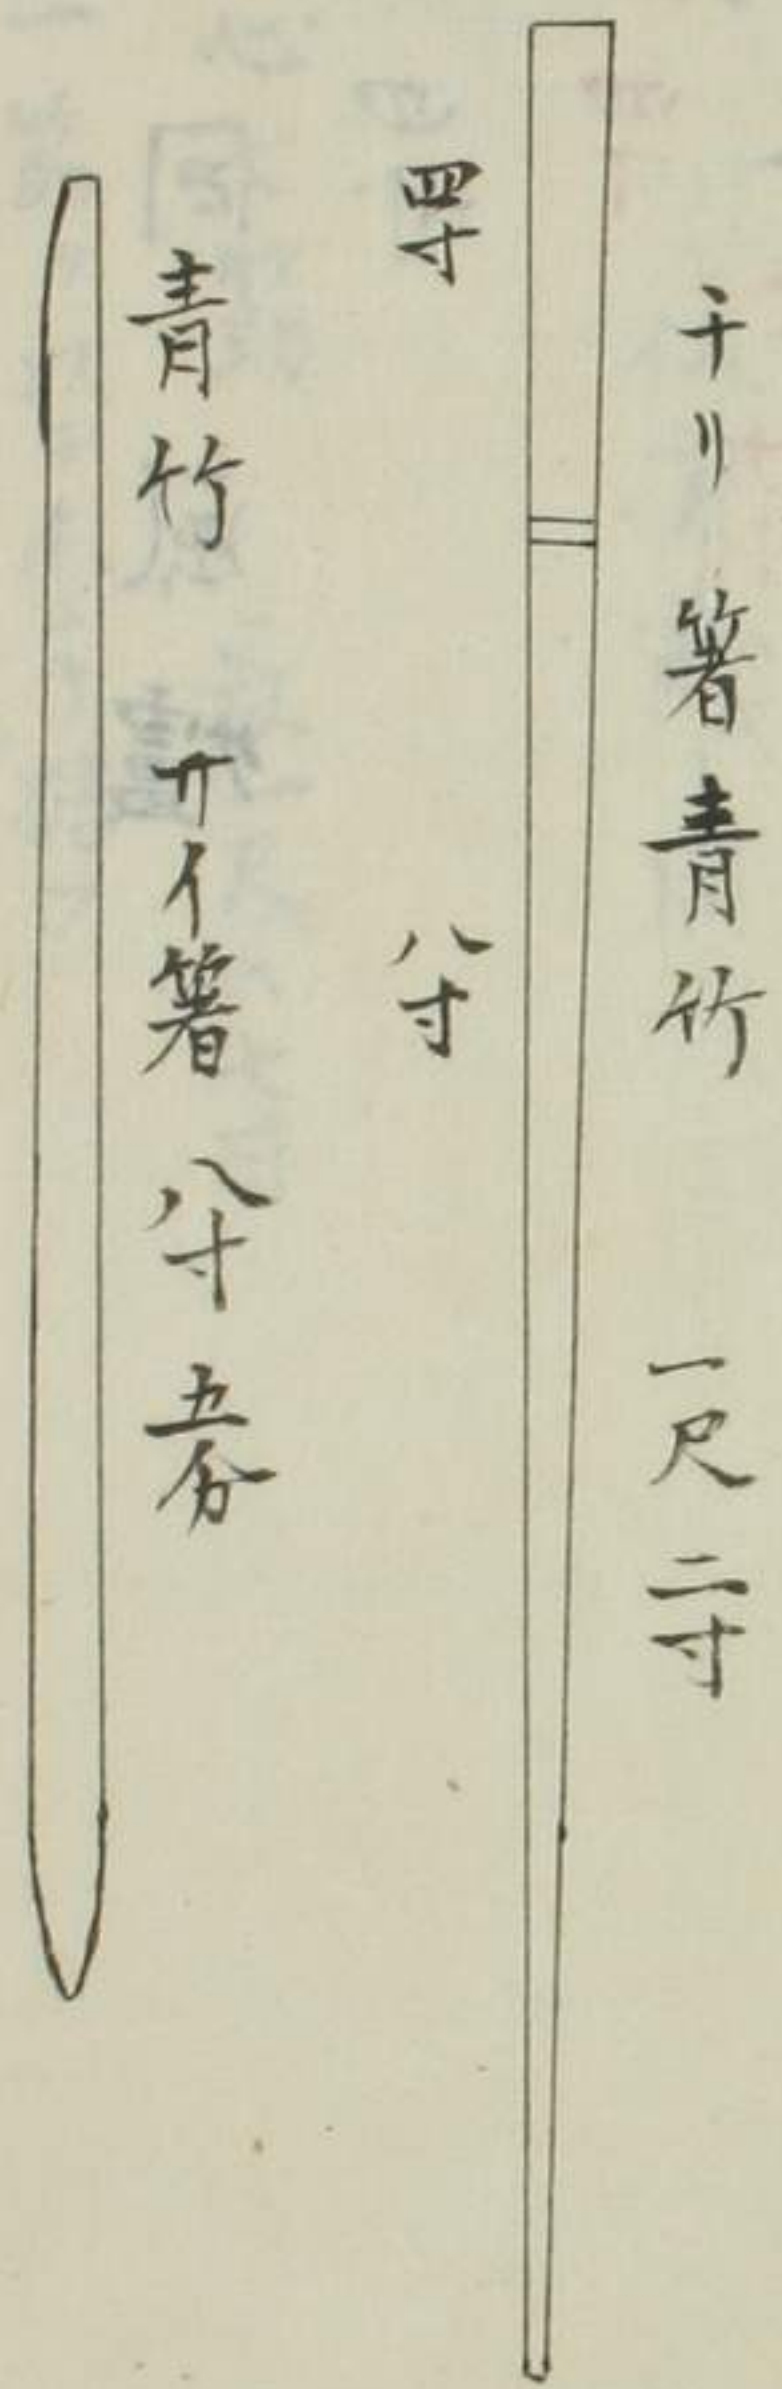 チリ箸青竹 一尺二寸
四寸
八寸
青竹 サイ箸 八寸五分